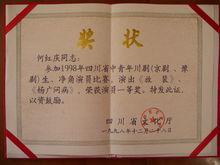 奖状
何红庆同志：
参加1998年四川省中青年川剧(京剧、豫
剧)生、净角演员比赛，演出《放裴》、
《杨广问病》，荣获演员一等奖，特发此证，
以资鼓励。
四川省文化厅
一九九八年十二月二十八日